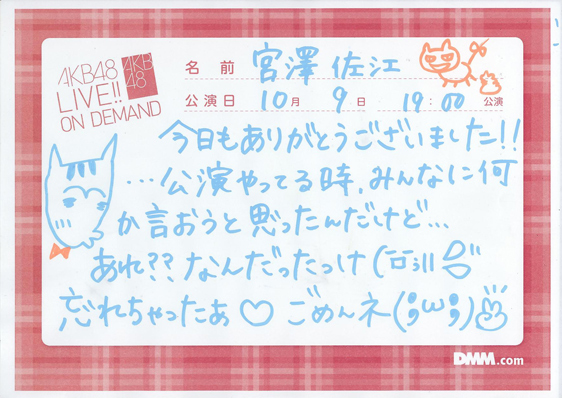 AKB48
LIVE!!
ON DEMAND
AKB
48
名前 宮澤 佐江
公演日 10月 9日 19:00公演
今日もありがとうございました!!
…公演やってる時、みんなに何
か言おうと思ったんだけど…
あれ??なんだったっけ(
忘れちゃったぁ♡ ごめんネ(;ω;)
DMM.com